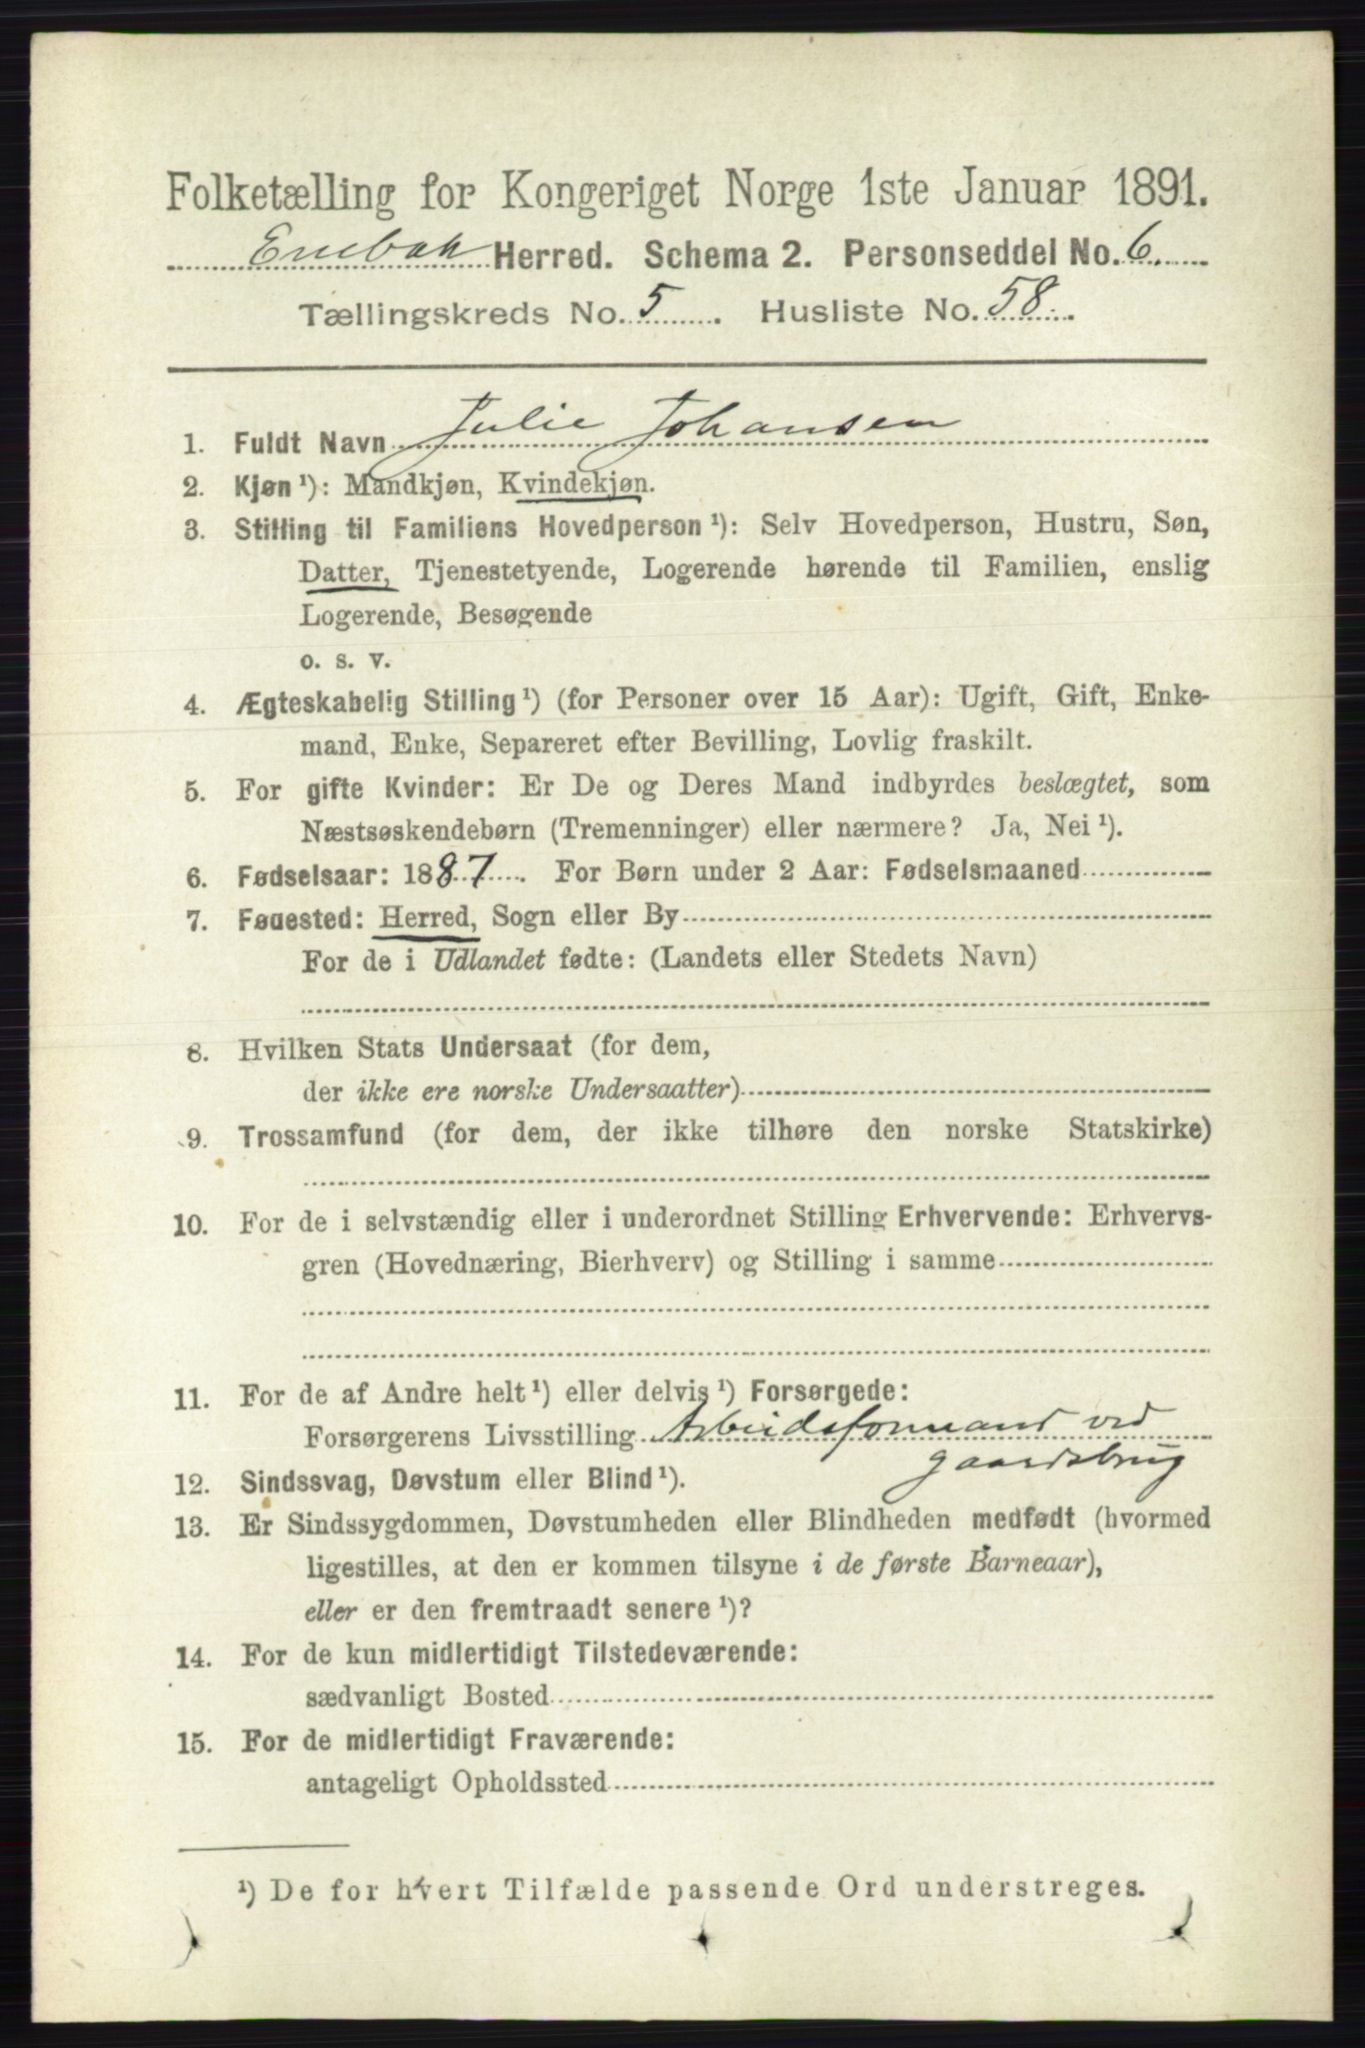 Folketælling for Kongeriget Norge 1ste Januar 1891.
Enebak Herred. Schema 2. Personseddel No. 6.
Tællingskreds No. 5. Husliste No. 58.
1. Fuldt Navn Julie Johansen
2. Kjøn ¹): Mandkjøn, Kvindekjøn.
3. Stilling til Familiens Hovedperson ¹): Selv Hovedperson, Hustru, Søn,
Datter, Tjenestetyende, Logerende hørende til Familien, enslig
Logerende, Besøgende
o. s. v.
4. Ægteskabelig Stilling ¹) (for Personer over 15 Aar): Ugift, Gift, Enke-
mand, Enke, Separeret efter Bevilling, Lovlig fraskilt.
5. For gifte Kvinder: Er De og Deres Mand indbyrdes beslægtet, som
Næstsøskendebørn (Tremenninger) eller nærmere? Ja, Nei ¹).
6. Fødselsaar: 1887. For Børn under 2 Aar: Fødselsmaaned
7. Fødested: Herred, Sogn eller By
For de i Udlandet fødte: (Landets eller Stedets Navn)
8. Hvilken Stats Undersaat (for dem,
der ikke ere norske Undersaatter)
9. Trossamfund (for dem, der ikke tilhøre den norske Statskirke)
10. For de i selvstændig eller i underordnet Stilling Erhvervende: Erhvervs-
gren (Hovednæring, Bierhverv) og Stilling i samme
11. For de af Andre helt ¹) eller delvis ¹) Forsørgede:
Forsørgerens Livsstilling Arbeidsformand ved
gaardsbrug
12. Sindssvag, Døvstum eller Blind ¹).
13. Er Sindssygdommen, Døvstumheden eller Blindheden medfødt (hvormed
ligestilles, at den er kommen tilsyne i de første Barneaar),
eller er den fremtraadt senere ¹)?
14. For de kun midlertidigt Tilstedeværende:
sædvanligt Bosted
15. For de midlertidigt Fraværende:
antageligt Opholdssted
¹) De for hvert Tilfælde passende Ord understreges.